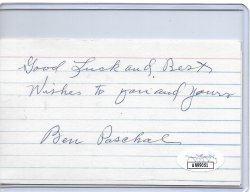 Good Luck and Best
Wishes to you and yours
Ben Paschal
JSA